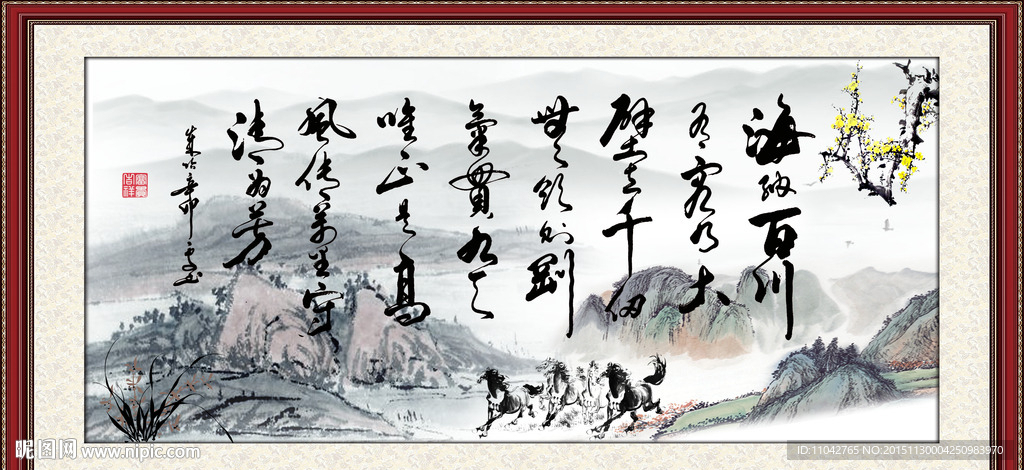 海納百川
有容乃大
壁立千仞
無欲則剛
氣貫九天
唯正是高
風傳萬里守
清為芳
富貴吉祥
昵图网 www.nipic.com
ID:11042765 NO:20151130004250983970